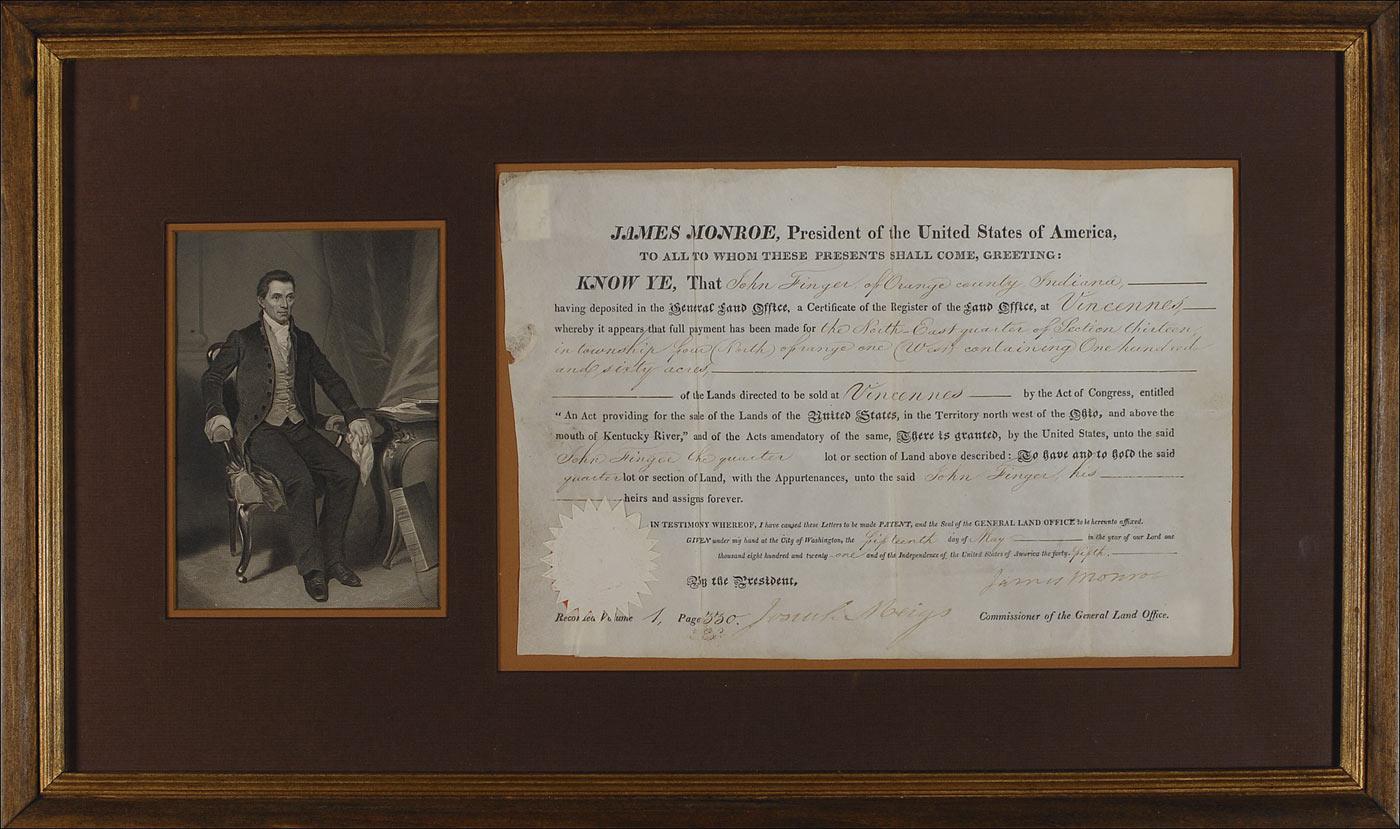 JAMES MONROE, President of the United States of America,
TO ALL TO WHOM THESE PRESENTS SHALL COME, GREETING:
KNOW YE, That John Finger, of Orange county, Indiana,
having deposited in the General Land Office, a Certificate of the Register of the Land Office, at Vincennes,
whereby it appears that full payment has been made for the North East quarter of Section thirteen,
in township four (North) of range one (West) containing One hundred
and sixty acres,
of the Lands directed to be sold at Vincennes by the Act of Congress, entitled
"An Act providing for the sale of the Lands of the United States, in the Territory north west of the Ohio, and above the
mouth of Kentucky River," and of the Acts amendatory of the same, There is granted, by the United States, unto the said
John Finger the quarter lot or section of Land above described: To have and to hold the said
quarter lot or section of Land, with the Appurtenances, unto the said John Finger, his
heirs and assigns forever.
IN TESTIMONY WHEREOF, I have caused these Letters to be made PATENT, and the Seal of the GENERAL LAND OFFICE to be hereunto affixed.
GIVEN under my hand at the City of Washington, the fifteenth day of May in the year of our Lord one
thousand eight hundred and twenty-one and of the Independence of the United States of America the forty-fifth.
By the President, James Monroe
Recorded Volume 1, Page 330. Josiah Meigs Commissioner of the General Land Office.